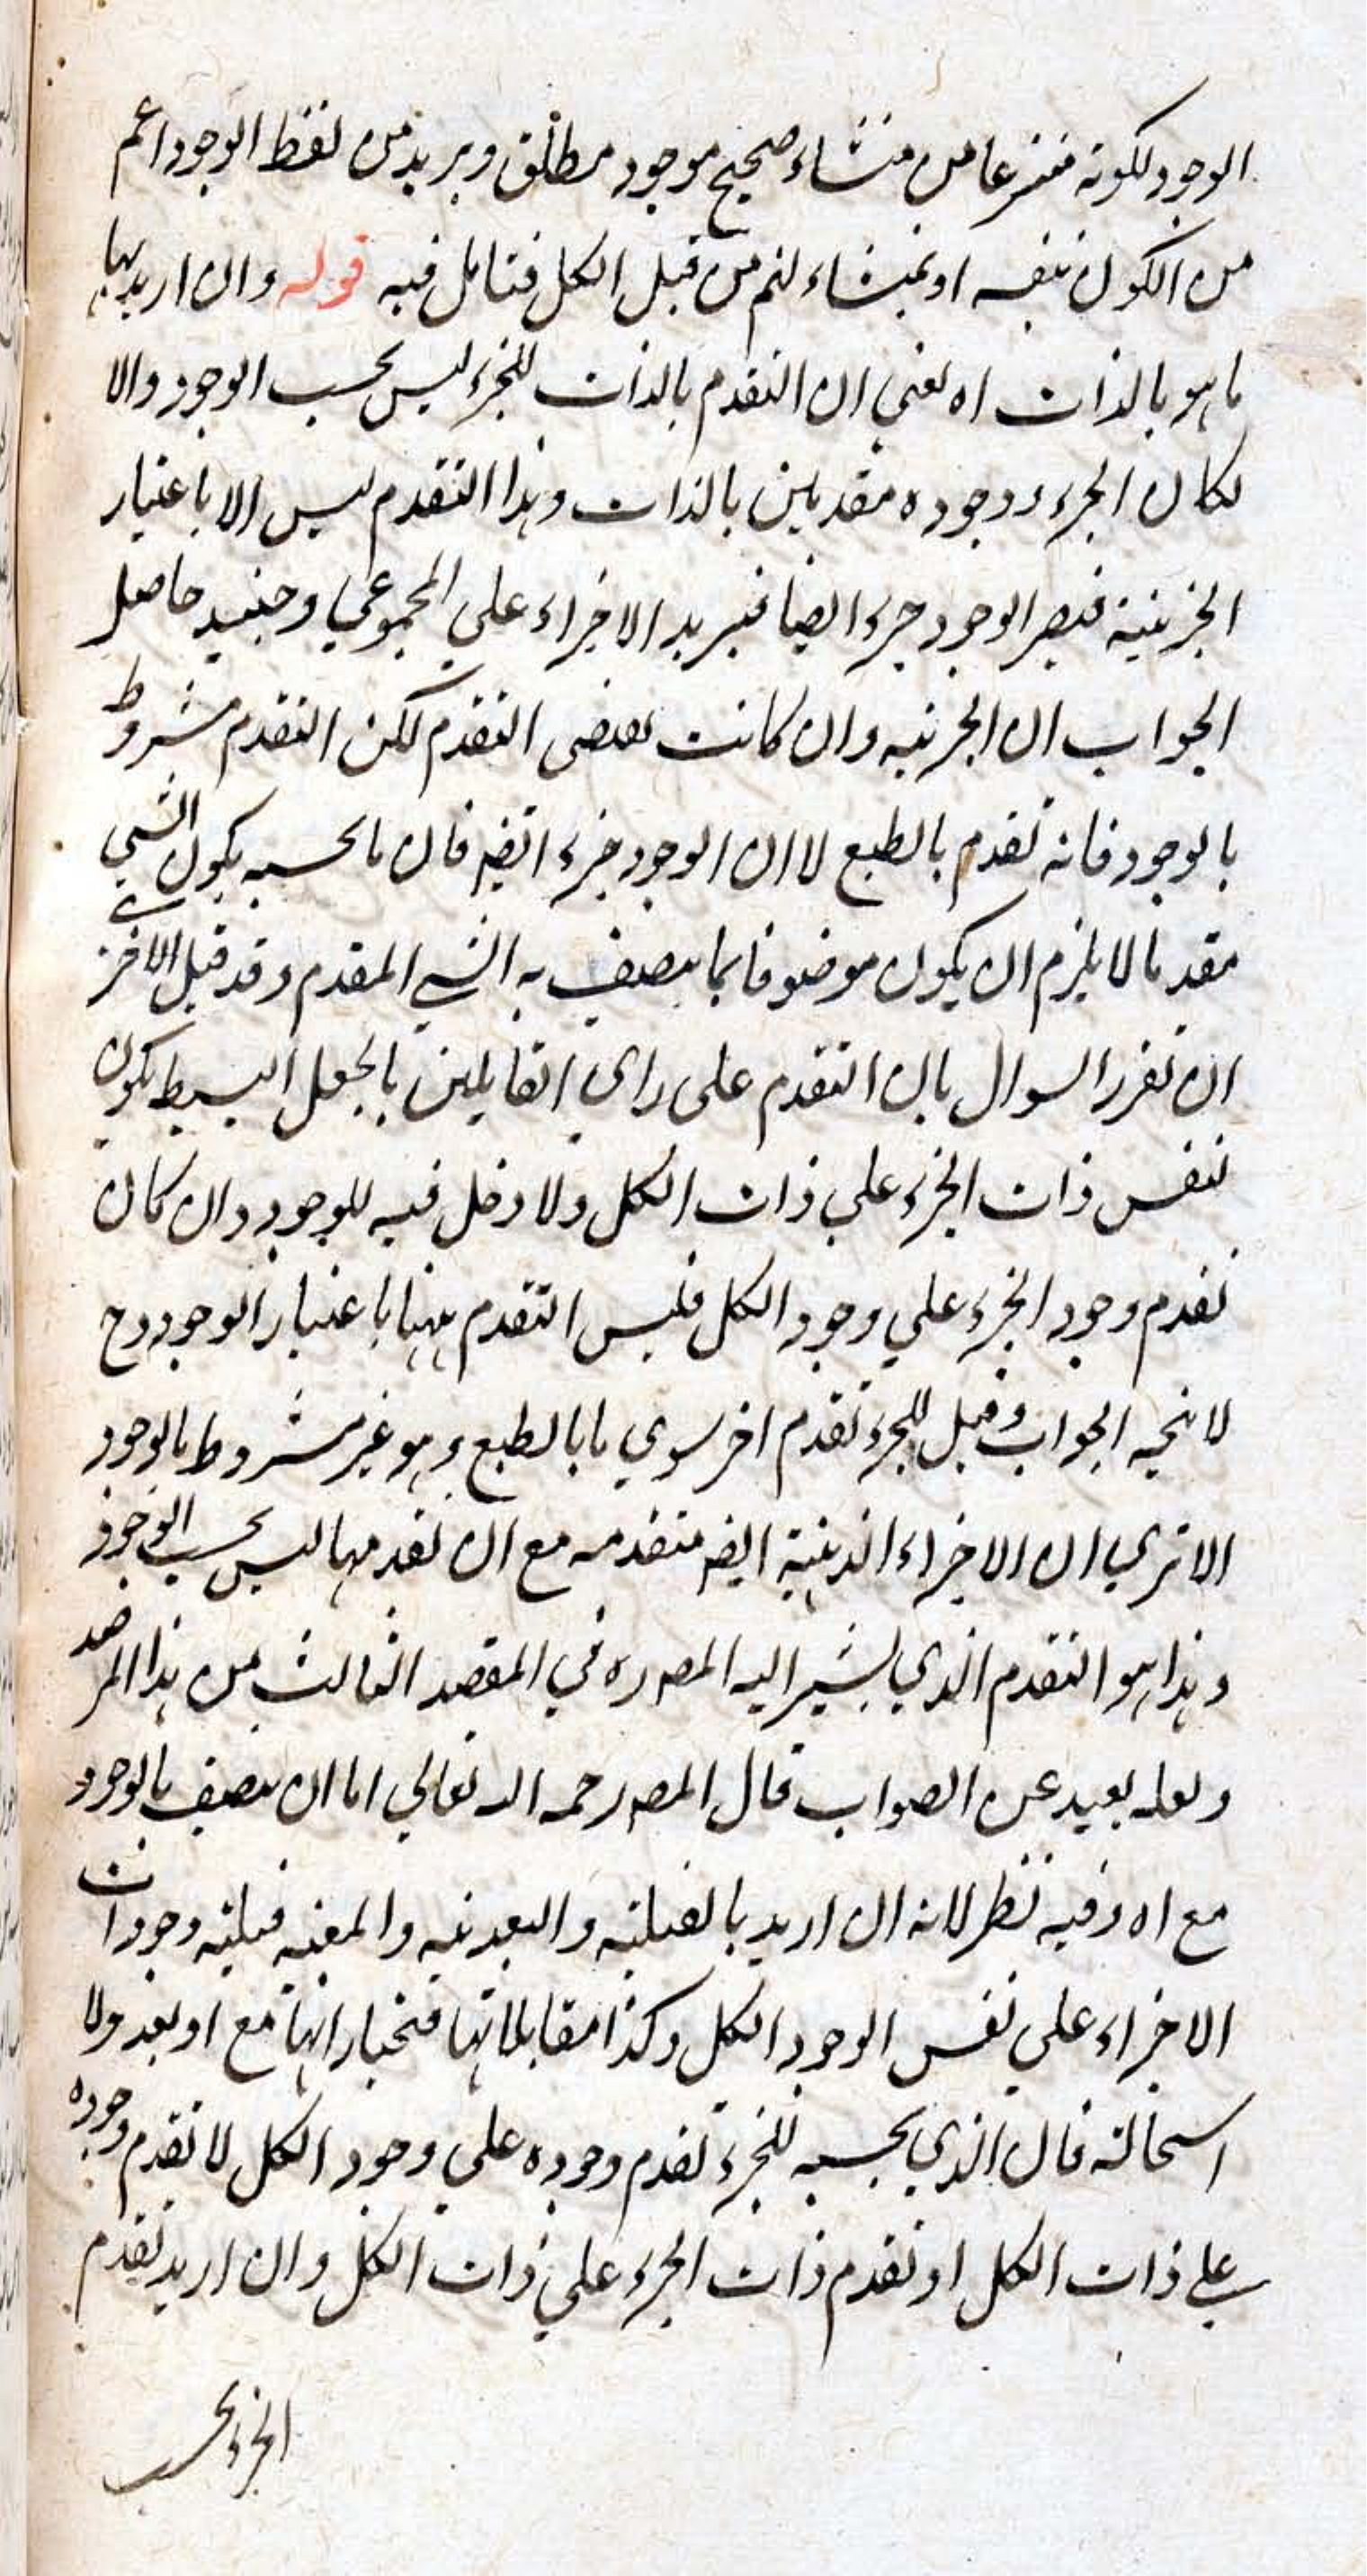 الوجود لكونه منتزعا من منشاء صحيح موجود مطلق ويريد من لفظ الوجود اعم
من الكون بنفسه او بمنشاء لنم من قبل الكل فتامل فيه قوله وان اريد بها
ما هو بالذات اه يعني ان التقدم بالذات للجزء ليس بحسب الوجود والا
لكان الجزء ووجوده مقدمين بالذات وهذا التقدم ليس الا باعتبار
الجزئية فيصير الوجود جزء ايضا فيزيد الاجزاء على المجموعي وحينئيذ حاصل
الجواب ان الجزئية وان كانت تقتضى التقدم لكن التقدم مشروط
بالوجود فانه تقدم بالطبع لا ان الوجود جزء ايضه فان ما بحسبه يكون الشي
مقدما لا يلزم ان يكون موضوفا بما يتصف به الشي المقدم وقد قيل الاخر
ان تقرر السوال بان التقدم على راى القايلين بالجعل البسيط يكون
بنفس ذات الجزء على ذات الكل ولا دخل فيه للوجود وان كان
تقدم وجود الجزء على وجود الكل فليس التقدم ههنا باعتبار الوجود وح
لا يتجه الجواب وقيل للجزء تقدم اخر سوي ما بالطبع وهو غير مشروط بالوجود
الا تري ان الاجزاء الذهنية ايضه متقدمه مع ان تقدمها ليس بحسب الوجود
وهذا هو التقدم الذي يشير اليه المصه ره في المقصد الثالث من هذا المرصد
ولعله بعيد عن الصواب قال المصه رحمه الله تعالي اما ان يتصف بالوجود
مع اه وفيه نظر لانه ان اريد بالقبلية والبعديه والمعيه قبلية وجودات
الاجزاء على نفس الوجود الكل وكذا مقابلاتها فنختار انها مع او بعد ولا
استحالة فان الذي يحسبه للجزء تقدم وجوده على وجود الكل لا تقدم وجوده
على ذات الكل او تقدم ذات الجزء على ذات الكل وان اريد تقدم
الجزء بحسب